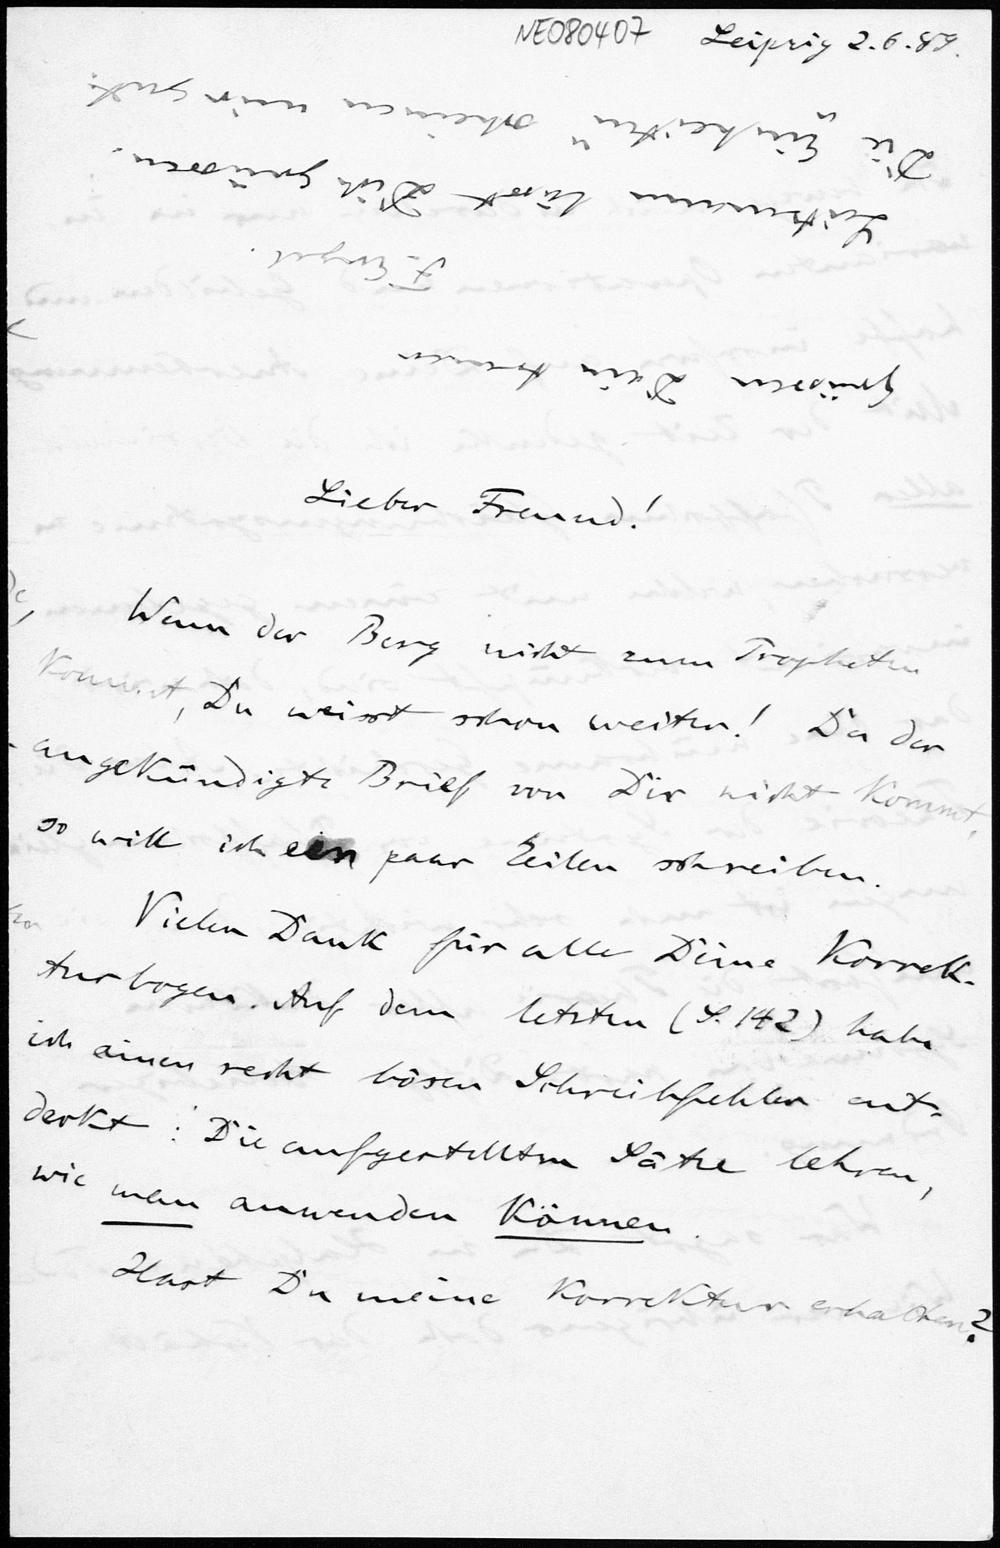 NE080407
Leipzig 2.6.89.
Lieber Freund!
Wenn der Berg nicht zum Propheten
kommt, Du weisst schon weiter! Da der
angekündigte Brief von Dir nicht kommt,
so will ich ein paar Zeilen schreiben.
Vielen Dank für alle Deine Korrek-
turbogen. Auf dem letzten (S. 142) habe
ich einen recht bösen Schreibfehler ent-
deckt: Die aufgestellten Sätze lehren,
wie man anwenden können.
Hast Du meine Korrektur erhalten?
Grüssen Dein treuer
F. Engel.
lässt Dich grüssen.
Die "Einheiten" scheinen mir gut.